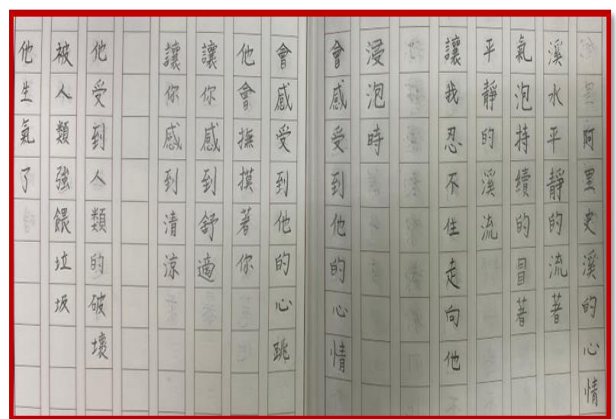 阿里史溪的心情
溪水平靜的流著
氣泡持續的冒著
平靜的溪流
讓我忍不住走向他
浸泡時
會感受到他的心情
會感受到他的心跳
他會撫摸著你
讓你感到舒適
讓你感到清涼
他受到人類的破壞
被人類強餵垃圾
他生氣了